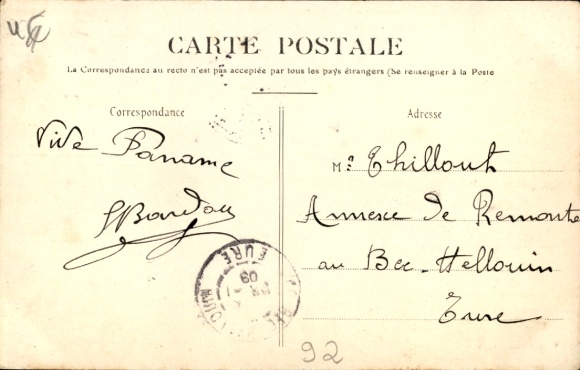 CARTE POSTALE
La Correspondance au recto n'est pas acceptée par tous les pays étrangers (Se renseigner à la Poste
Correspondance
Adresse
Vive Paname
M. Thillout
Annexe de Remonte
au Bec-Hellouin
Eure
EURE
09
92